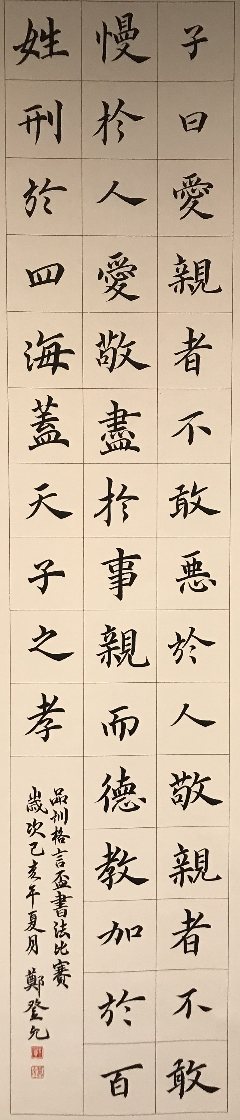 子曰愛親者不敢惡於人敬親者不敢
慢於人愛敬盡於事親而德教加於百
姓刑於四海蓋天子之孝
品訓格言盃書法比賽
歲次己亥年夏月 鄭登允